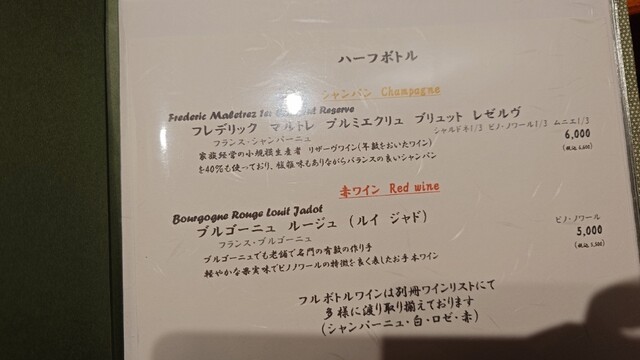 ハーフボトル
シャンパン Champagne
Frederic Maletrez 1er Reserve
フレデリック マルトレ プルミエクリュ ブリュット レゼルヴ
フランス・シャンパーニュ
シャルドネ1/3 ピノ・ノワール1/3 ムニエ1/3
家族経営の小規模生産者 リザーヴワイン(年数をおいたワイン)
6,000
を40%も使っており、複雑味もありながらバランスの良いシャンパン
(税込6,600)
赤ワイン Red wine
Bourgogne Rouge Louit Jadot
ブルゴーニュ ルージュ (ルイ ジャド)
ピノ・ノワール
フランス・ブルゴーニュ
5,000
ブルゴーニュでも老舗で名門の有数の作り手
(税込5,500)
軽やかな果実味でピノノワールの特徴を良く表したお手本ワイン
フルボトルワインは別冊ワインリストにて
多様に取り揃えております
(シャンパーニュ・白・ロゼ・赤)